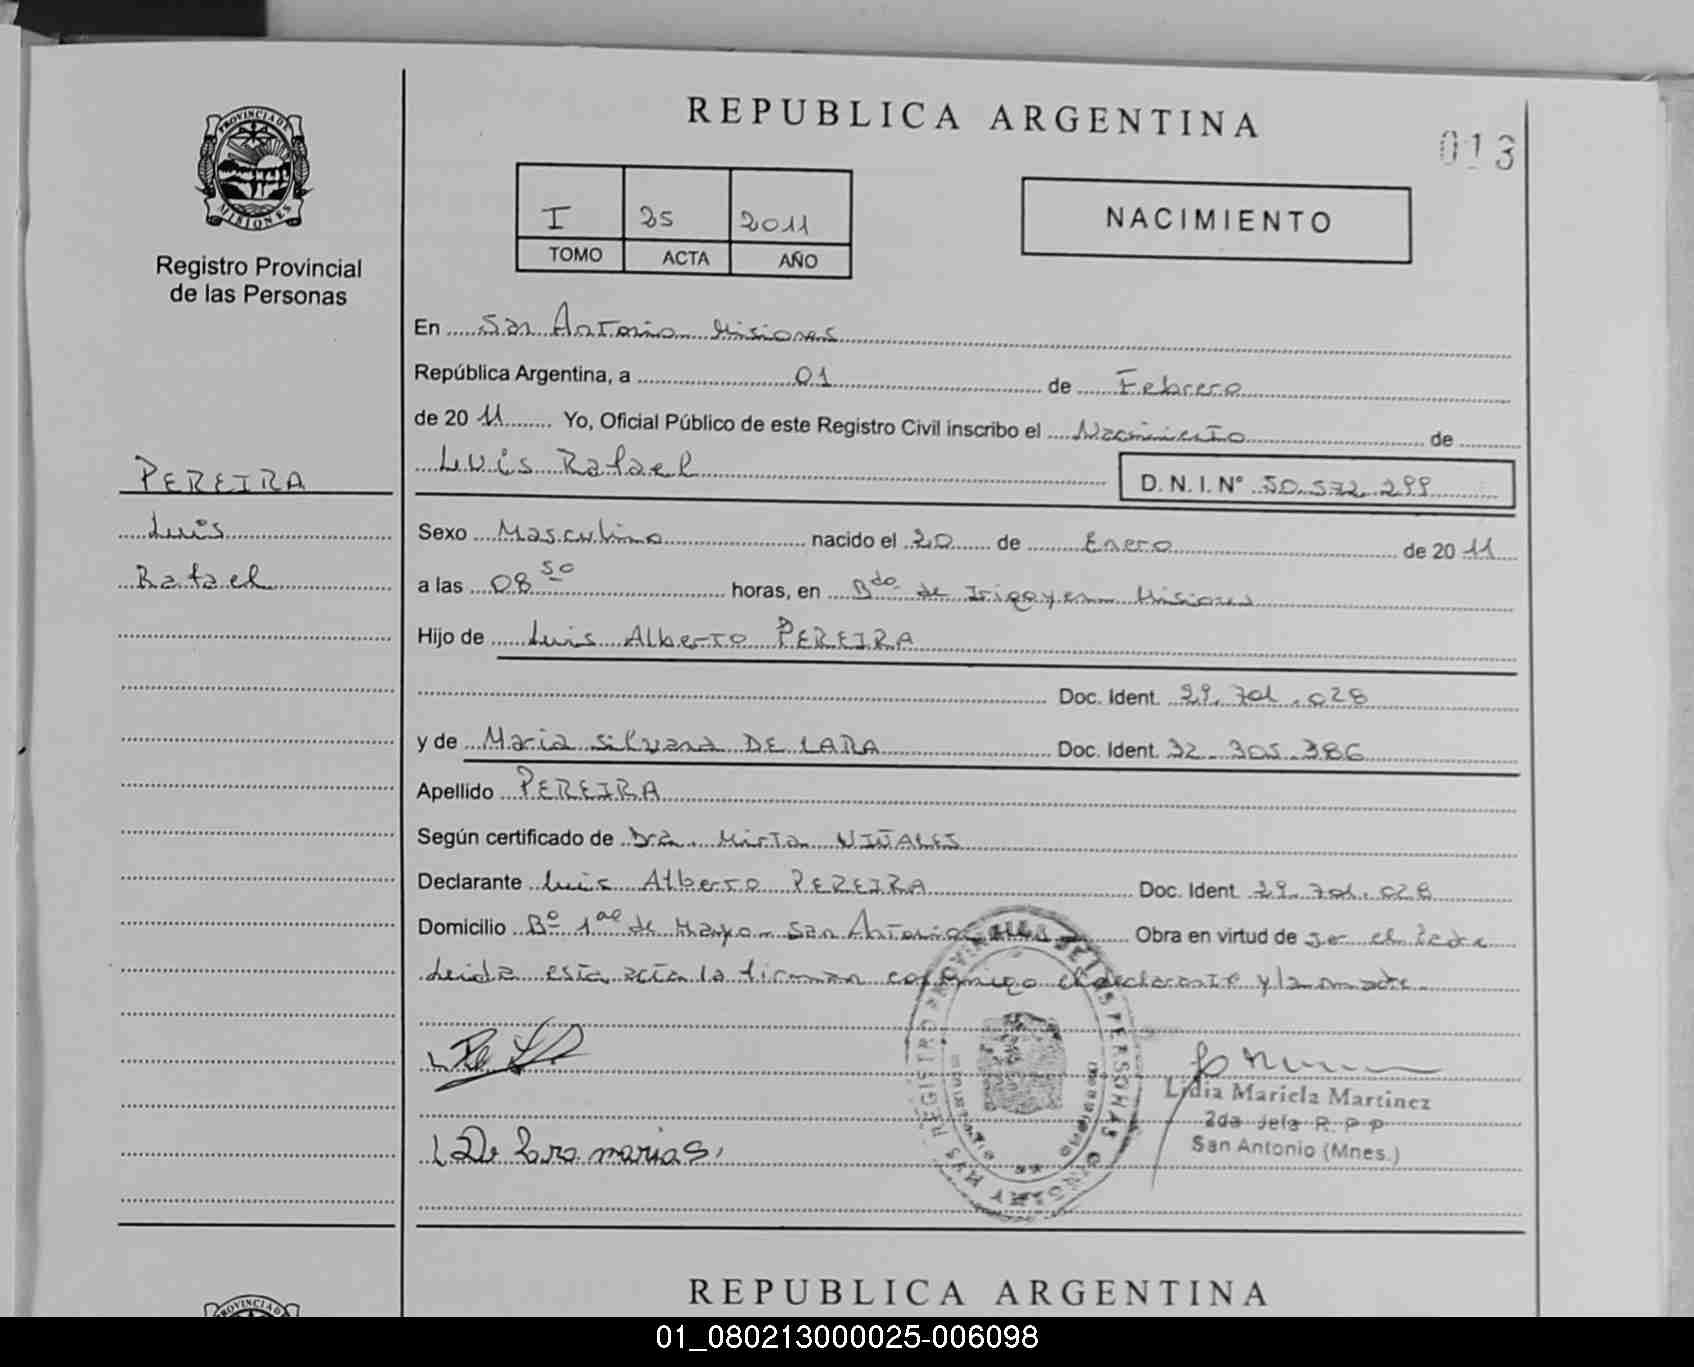 REPUBLICA ARGENTINA
013
PROVINCIA DE MISIONES
Registro Provincial
de las Personas
I 25 2011
TOMO ACTA AÑO
NACIMIENTO
En San Antonio Misiones
República Argentina, a 01 de Febrero
de 20 11 Yo, Oficial Público de este Registro Civil inscribo el Nacimiento de
Luis Rafael D. N. I. N° 50.572.299
PEREIRA
Luis
Rafael
Sexo Masculino nacido el 20 de Enero de 20 11
a las 08 50 horas, en Bdo de Irigoyen Misiones
Hijo de Luis Alberto PEREIRA
Doc. Ident. 29.701.028
y de Maria Silvana DE LARA Doc. Ident. 32.305.386
Apellido PEREIRA
Según certificado de Dra. Mirta VIÑALES
Declarante Luis Alberto PEREIRA Doc. Ident. 29.701.028
Domicilio Bº 1º de Mayo - San Antonio Obra en virtud de ser el padre
Leida esta acta la firman conmigo el declarante y la madre.
Lidia Mariela Martinez
2da Jefa R. P P
San Antonio (Mnes.)
REPUBLICA ARGENTINA
01_080213000025-006098